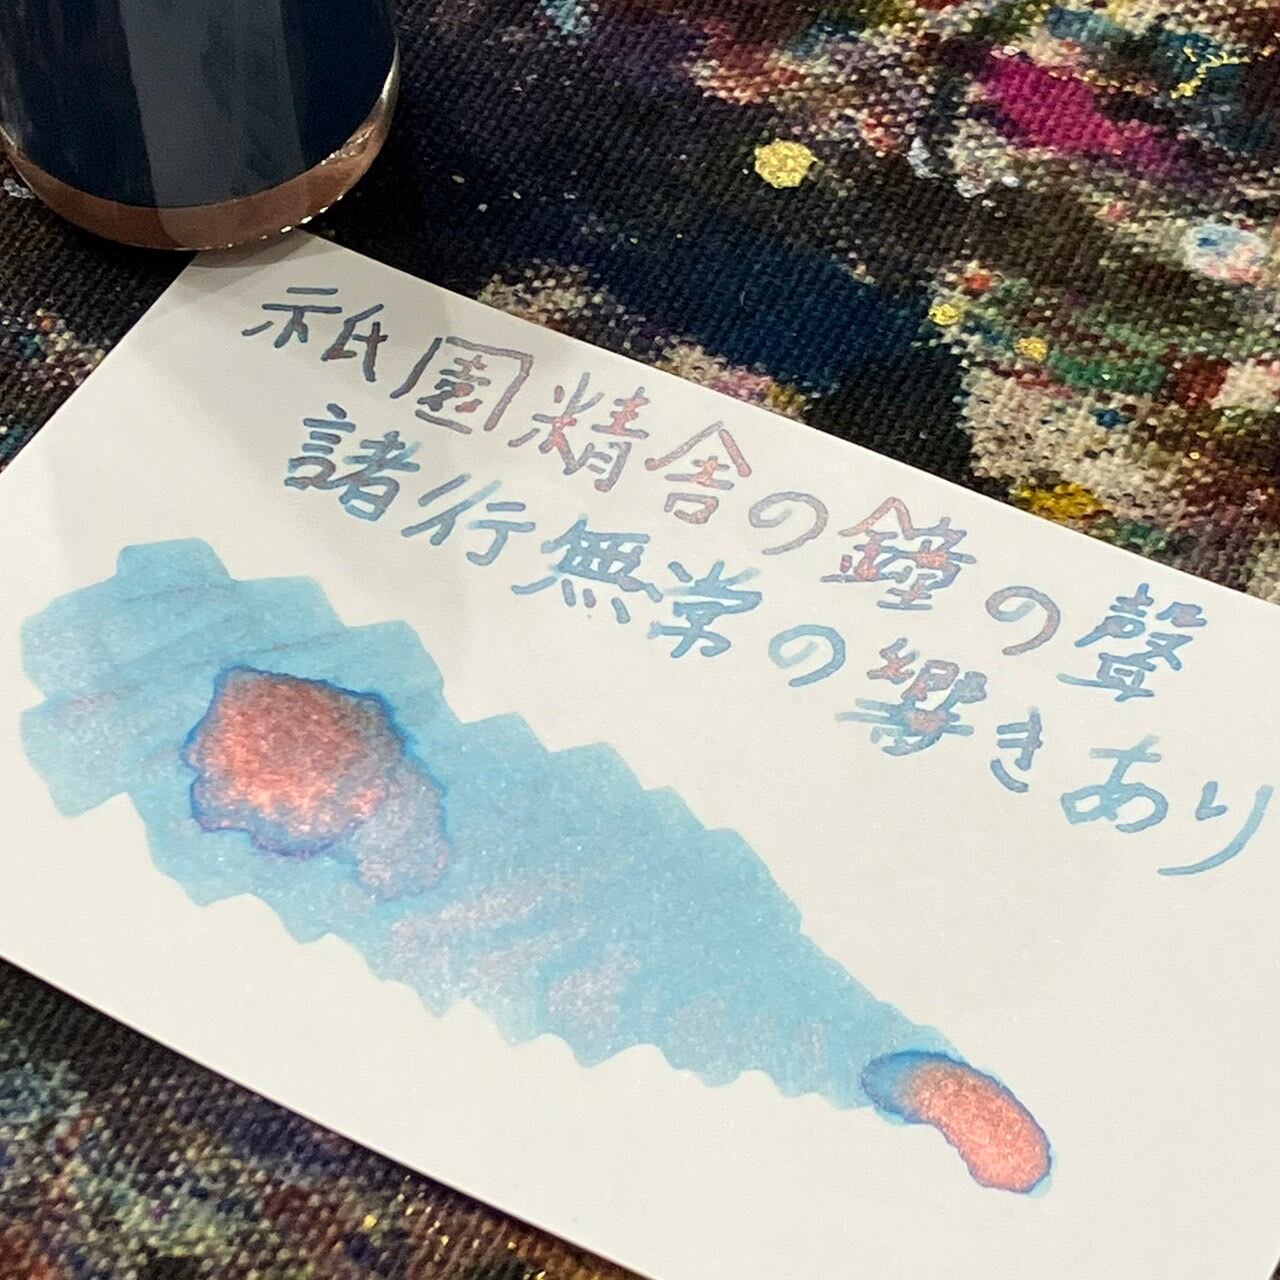 祇園精舎の鐘の聲
諸行無常の響きあり